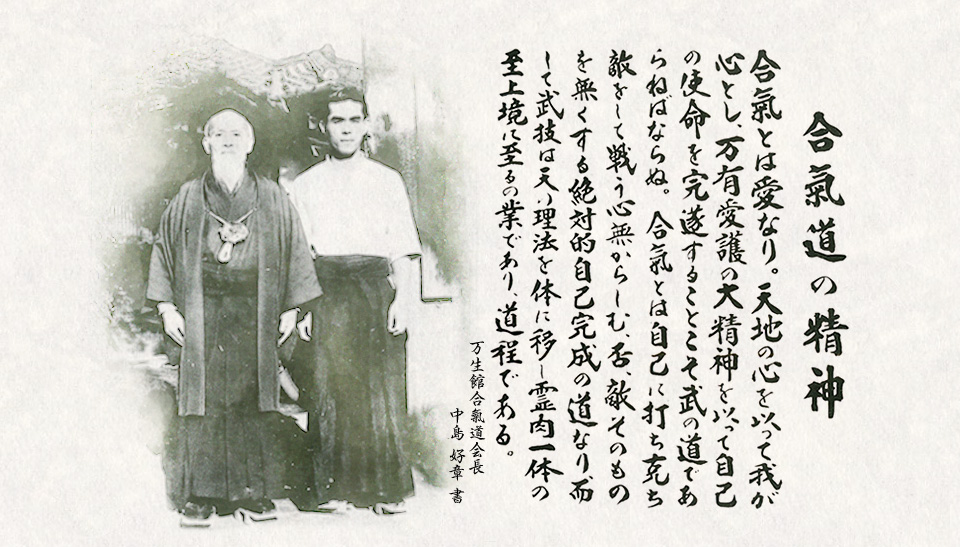 合氣道の精神
合氣とは愛なり。天地の心を以って我が
心とし、万有愛護の大精神を以って自己
の使命を完遂することこそ武の道であ
らねばならぬ。合氣とは自己に打ち克ち
敵をして戦う心無からしむ、否、敵そのもの
を無くする絶対的自己完成の道なり、而
して武技は天の理法を体に移し霊肉一体の
至上境に至るの業であり、道程である。
万生館合氣道会長
中島好章書